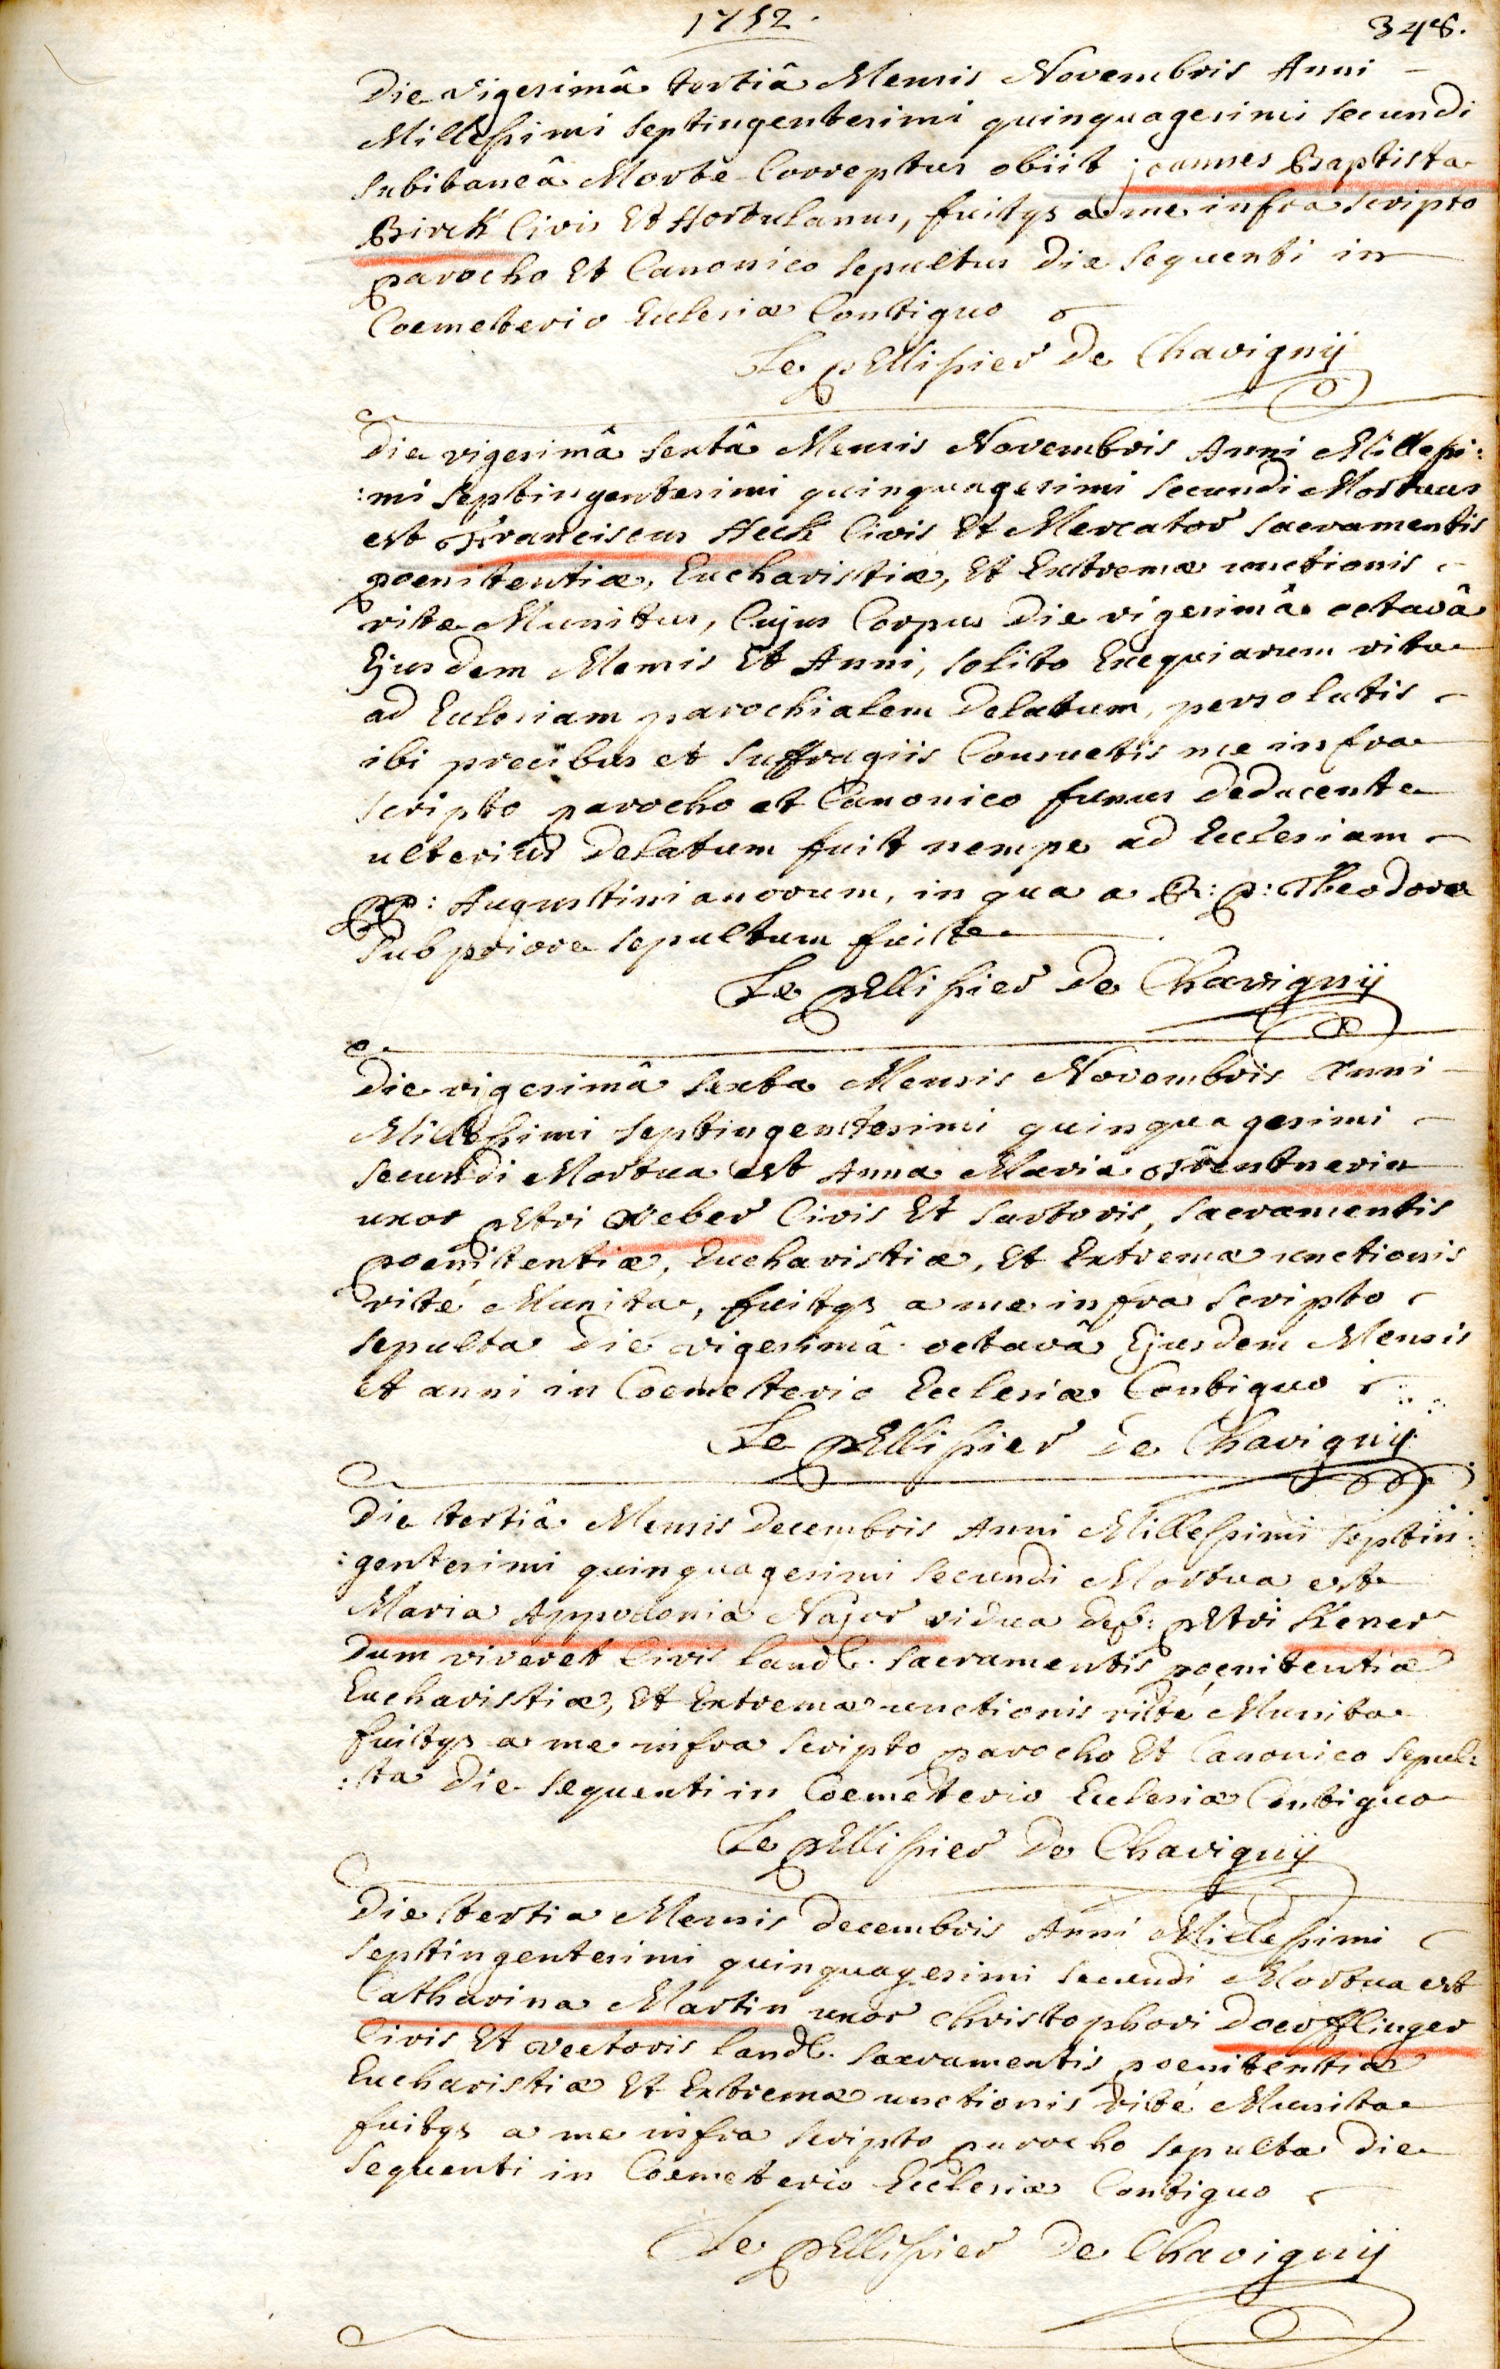 1752.
348.
Die vigesimâ tertiâ Mensis Novembris Anni
Millesimi Septingentesimi quinquagesimi secundi
subitaneâ Morte Correptus obiit joannes Baptista
Birck Civis Et Hortulanus, fuitqs a me infra scripto
parocho Et Canonico sepultus Die sequenti in
Coemeterio Ecclesiæ Contiguo
Le pEllissier De Chavignÿ
Die vigesimâ sextâ Mensis Novembris Anni Millesi:
:mi Septingentesimi quinquagesimi secundi Mortuus
est Franciscus Heck Civis Et Mercator sacramentis
poenitentiæ, Eucharistiæ, Et Extremæ unctionis
rite Munitus, Cujus Corpus Die vigesimâ octavâ
Ejusdem Mensis Et Anni, solito Exequiarum ritu
ad Ecclesiam parochialem Delatum, persolutis
ibi precibus et suffragiis Consuetis me infra
scripto parocho et Canonico funus Deducente
ulterius Delatum fuit nempe ad Ecclesiam
pp: Augustinianorum, in qua a R: p: Theodoro
Subpriore sepultum fuit
Le pEllissier De Chavignÿ
Die vigesimâ sexta Mensis Novembris Anni
Millesimi Septingentesimi quinquagesimi
secundi Mortua est Anna Maria Trentnerin
uxor pEtri Weber Civis Et sartoris, sacramentis
poenitentiæ, Eucharistiæ, Et Extremæ unctionis
rité Munita, fuitqs a me infra scripto
sepulta Die vigesimâ octavâ Ejusdem Mensis
et anni in Coemeterio Ecclesiæ Contiguo
Le pEllissier De Chavignÿ
Die tertiâ Mensis Decembris Anni Millesimi Septin:
:gentesimi quinquagesimi secundi Mortua est
Maria Appolonia Najor vidua Def: pEtri Kener
Dum viveret Civis Land. sacramentis poenitentiæ
Eucharistiæ, Et Extremæ unctionis rité Munita
fuitqs a me infra scripto parocho Et Canonico sepul:
:ta Die sequenti in Coemeterio Ecclesiæ Contiguo
Le pEllissier De Chavignÿ
Die tertia Mensis Decembris Anni Millesimi
Septingentesimi quinquagesimi secundi Mortua est
Catharina Martin uxor Christophori Doerfflinger
Civis Et vectoris Land. sacramentis poenitentiæ
Eucharistiæ Et Extremæ unctionis rité Munita
fuitqs a me infra scripto parocho sepulta Die
sequenti in Coemeterio Ecclesiæ Contiguo
Le pEllissier De Chavignÿ